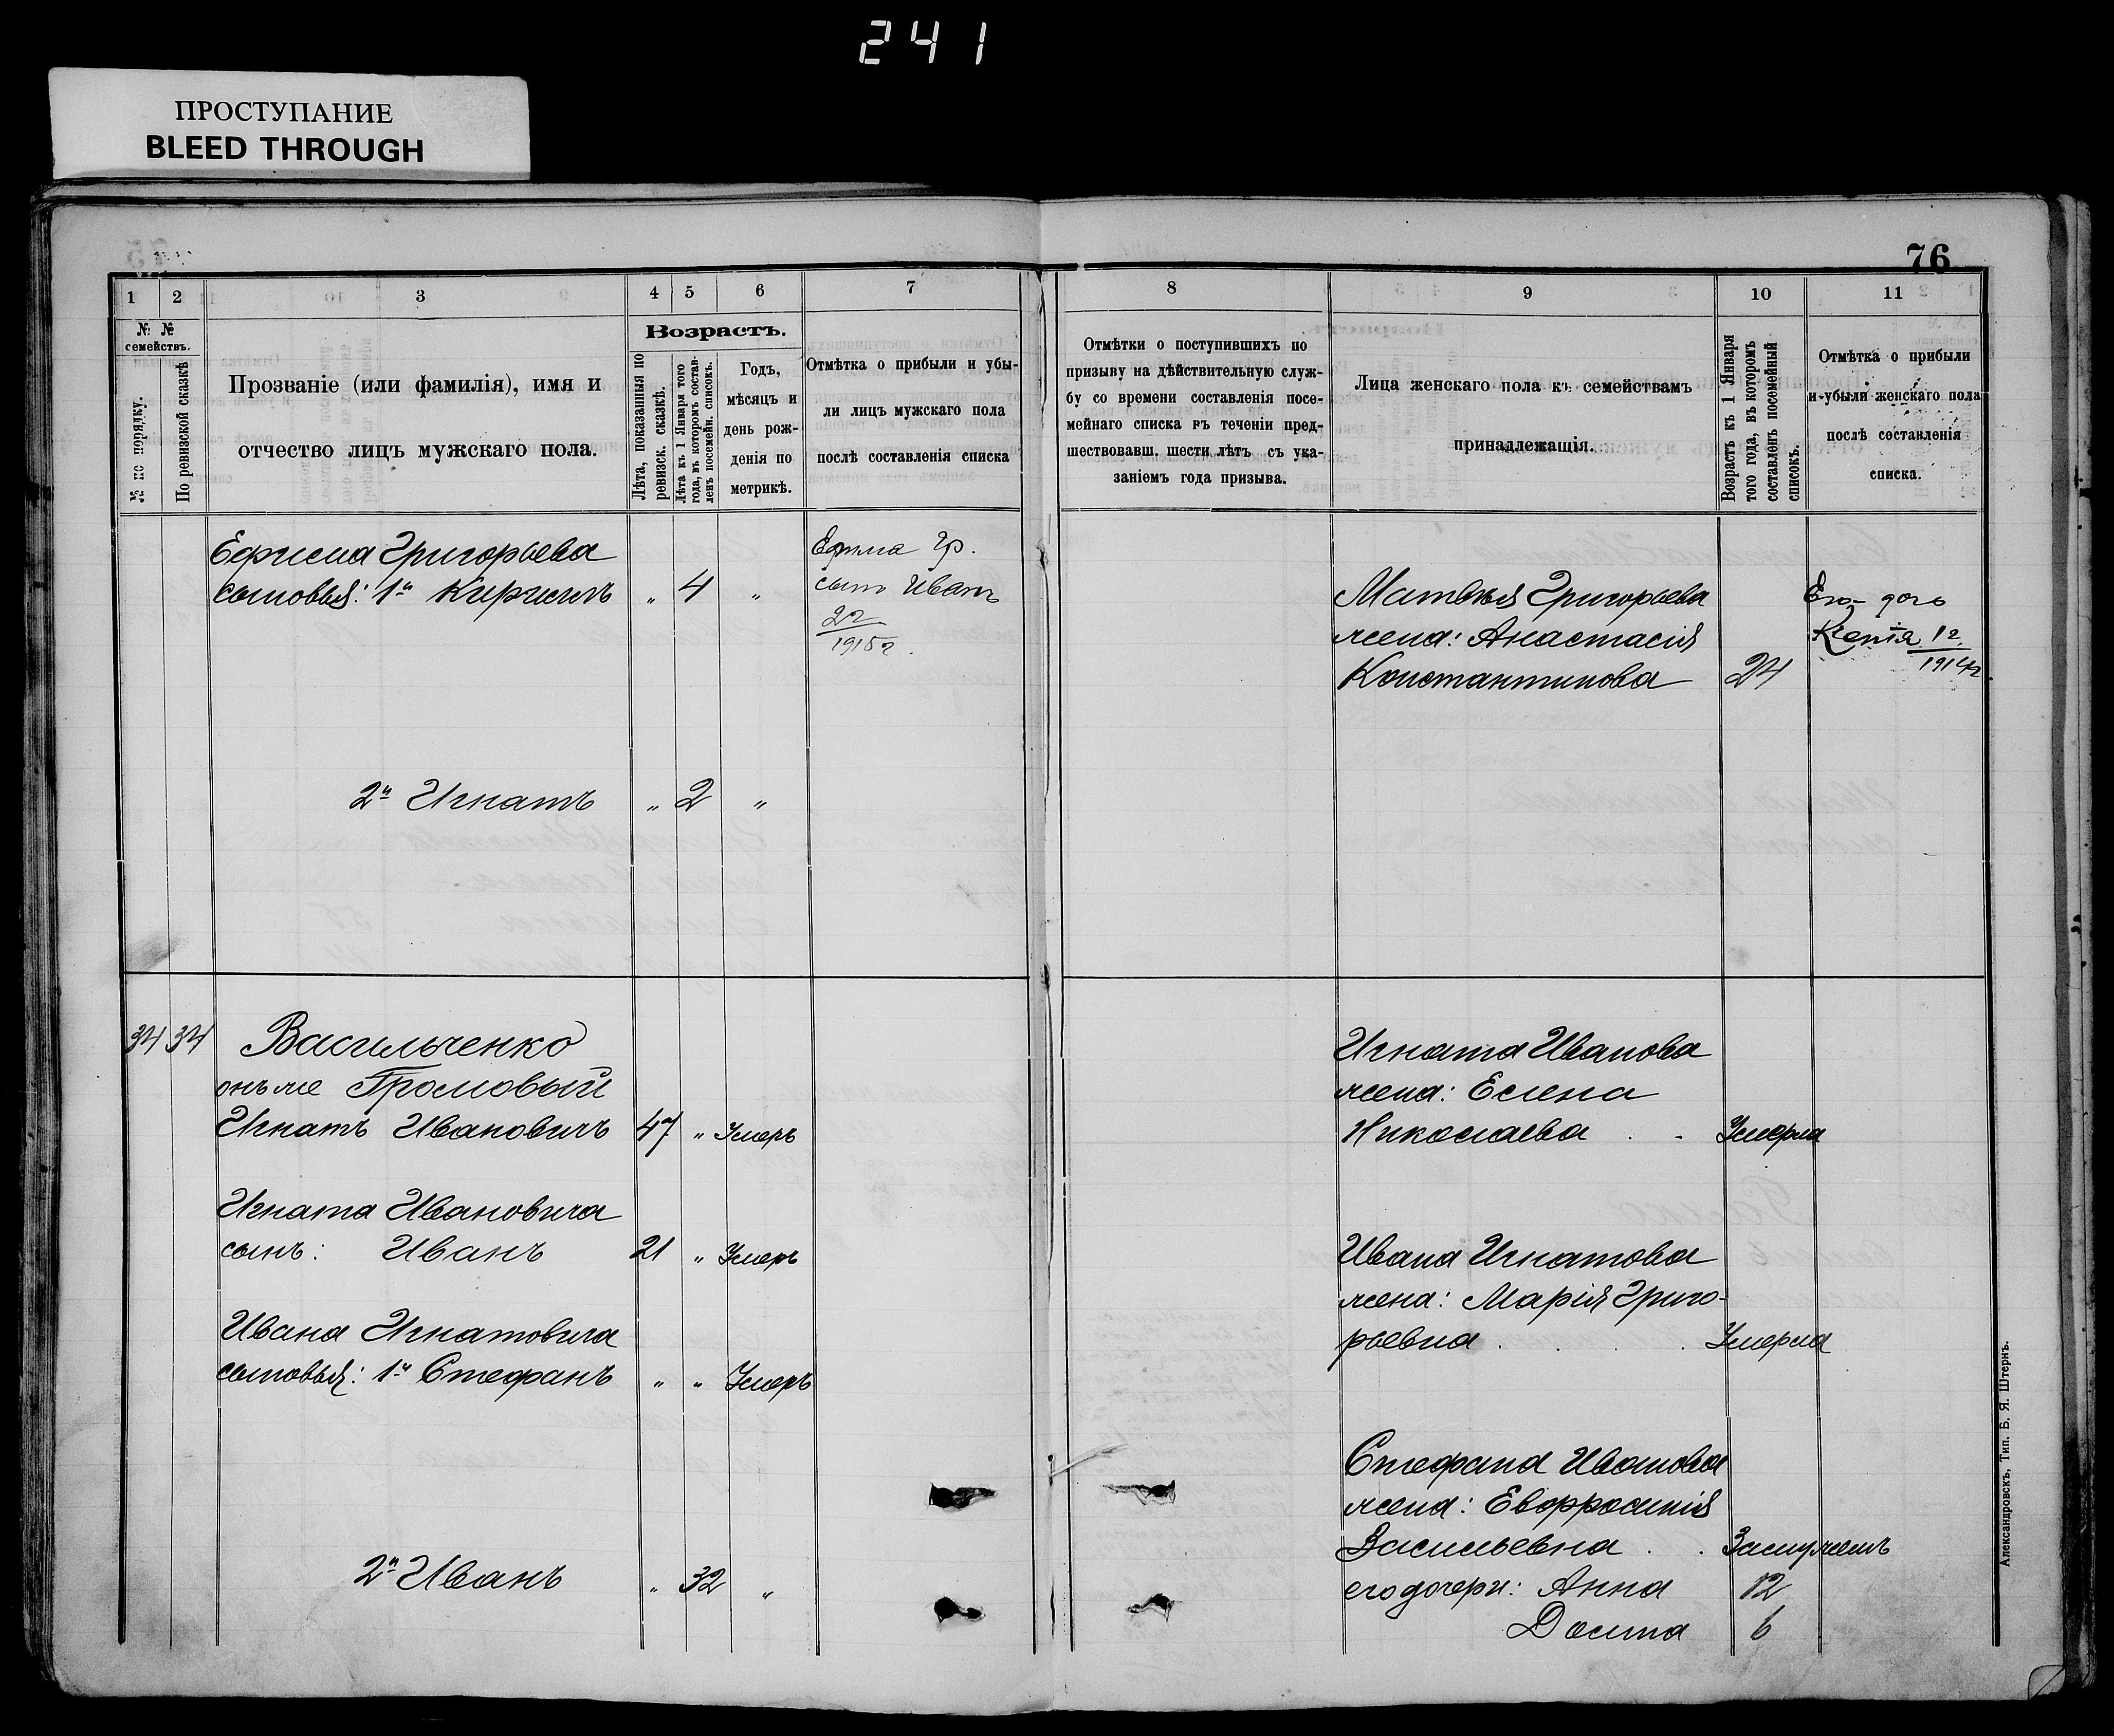 241
ПРОСТУПАНИЕ
BLEED THROUGH
76
1 2 3 4 5 6 7
№ №
семействъ.
№ по порядку.
По ревизской сказкѣ
Прозваніе (или фамилія), имя и
отчество лицъ мужскаго пола.
Возрастъ.
Лѣта, показанныя по
ревизск. сказкѣ.
Лѣта къ 1 Января того
года, въ которомъ состав-
ленъ посемейн. списокъ.
Годъ,
мѣсяцъ и
день рож-
денія по
метрикѣ.
Отмѣтка о прибыли и убы-
ли лицъ мужскаго пола
послѣ составленія списка
Ефима Григорьева
сыновья: 1й Кириллъ „ 4 „
Ефима Гр.
сынъ Иванъ
22
1915г.
2й Игнатъ „ 2 „
34 34 Васильченко
онъ же Громовый
Игнатъ Ивановичъ 47 „ Умеръ
Игната Ивановича
сынъ: Иванъ 21 „ Умеръ
Ивана Игнатовича
сыновья: 1й Стефанъ „ „ Умеръ
2й Иванъ „ 32 „
8 9 10 11
Отмѣтки о поступившихъ по
призыву на дѣйствительную служ-
бу со времени составленія посе-
мейнаго списка въ теченіи пред-
шествовавш. шести лѣтъ съ ука-
заніемъ года призыва.
Лица женскаго пола къ семействамъ
принадлежащія.
Возрастъ къ 1 Января
того года, въ которомъ
составленъ посемейный
списокъ.
Отмѣтка о прибыли
и убыли женскаго пола
послѣ составленія
списка.
Матвѣя Григорьева
жена: Анастасія
Константинова 24
Его дочь
Ксенія 12
1914г.
Игната Иванова
жена: Елена
Николаева . . Умерла
Ивана Игнатова
жена: Марія Григо-
рьевна . . . Умерла
Стефана Иванова
жена: Евфросинія
Васильевна . . Замужемъ
его дочери: Анна 12
Домна 6
Александровскъ, Тип. Б. Я. Штернъ.